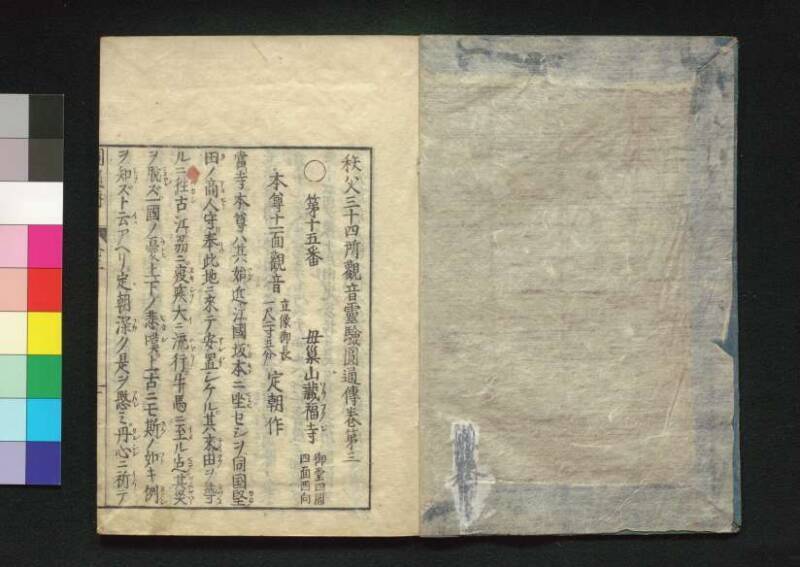 秩父三十四所觀音靈驗圓通傳卷第三
○ 第十五番 母巢山藏福寺 御堂四間四面西向
本尊十一面觀音 立像御長一尺二寸五分 定朝作
當寺本尊ハ其始近江國坂本ニ坐セシヲ同国堅
田ノ商人守奉此地ニ來テ安置シケル其來由ヲ尋
ルニ往古江 ニ疫疾大ニ流行牛馬ニ至ル迠其災
ヲ脱ズ一國ノ 上下ノ悲嘆上古ニモ斯ノ如キ例
ヲ知ズト云アヘリ定朝深ク是ヲ愍ミ丹心ニ祈テ